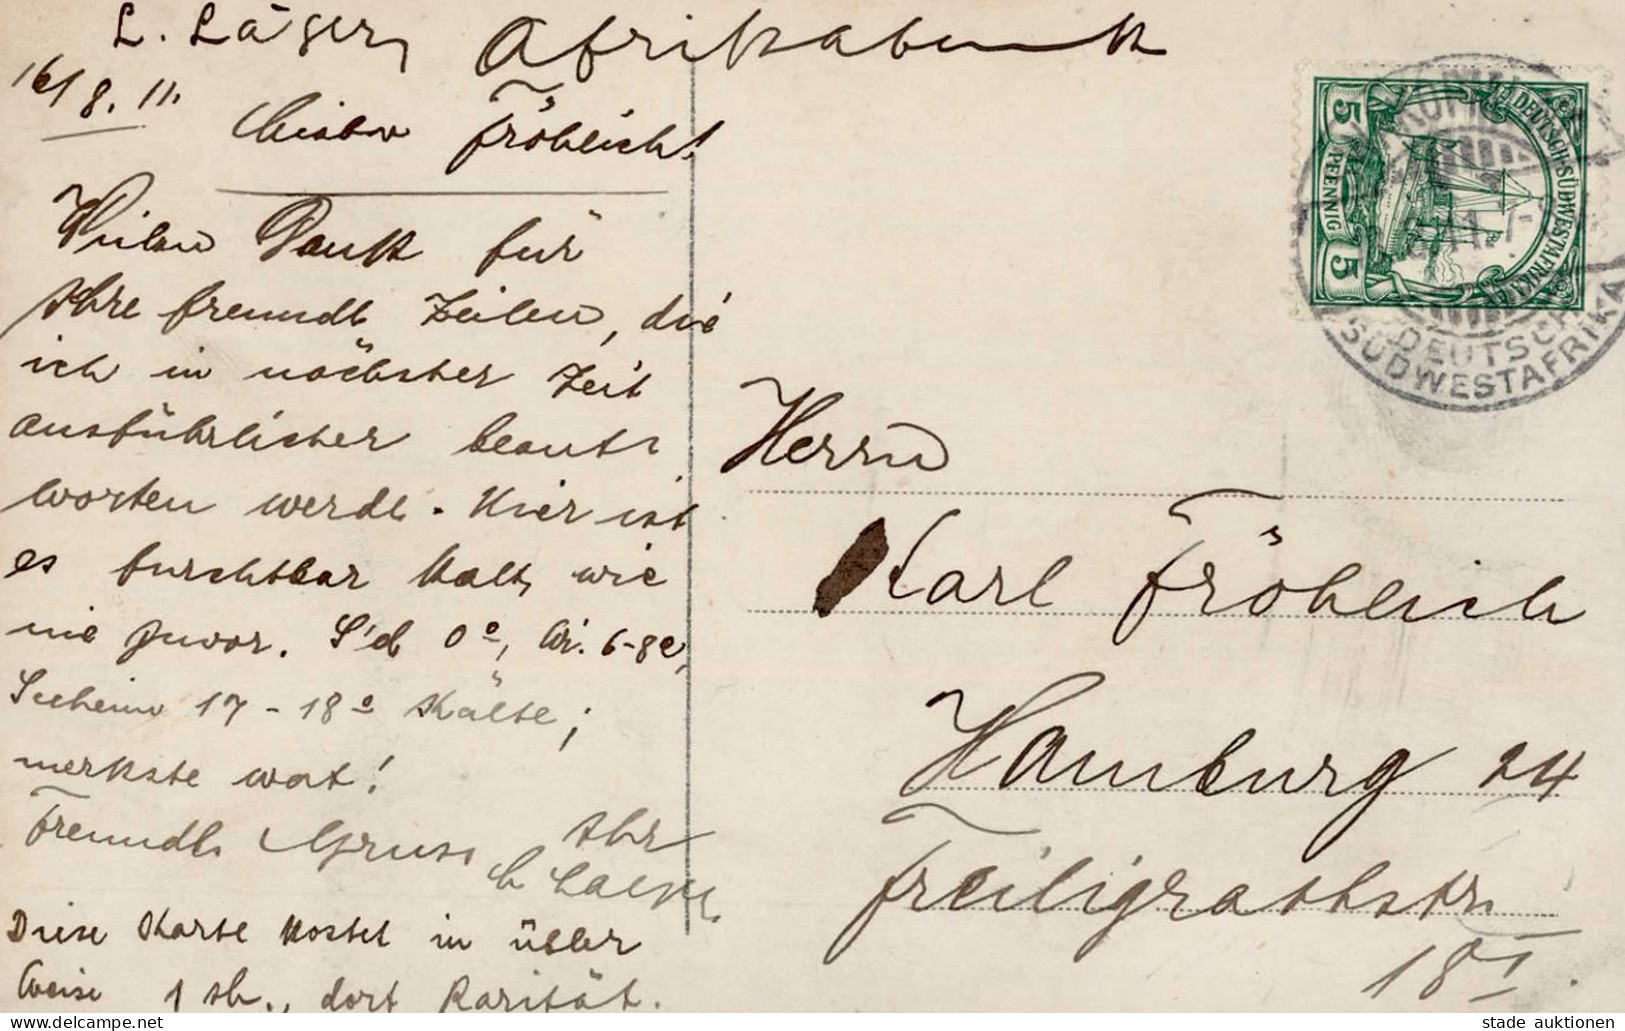 L. Läger, Afrikabank
16/8. 11.
Lieber Fröhlich!
Vielen Dank für
Ihre freundl. Zeilen, die
ich in nächster Zeit
ausführlicher beant-
worten werde. Hier ist
es furchtbar kalt, wie
nie zuvor. 0°, 6-8°,
Seeheim 17-18° Kälte;
merkste wat!
Freundl. Gruss Ihr
L
Diese Karte kostet in übler
Weise 1 sh., dort Rarität.
DEUTSCH-SÜDWESTAFRIKA
5 PFENNIG 5
11. 7
DEUTSCH
SÜDWESTAFRIKA
Herrn
Karl Fröhlich
Hamburg 24
Freiligrathstr.
18 I.
stade auktionen